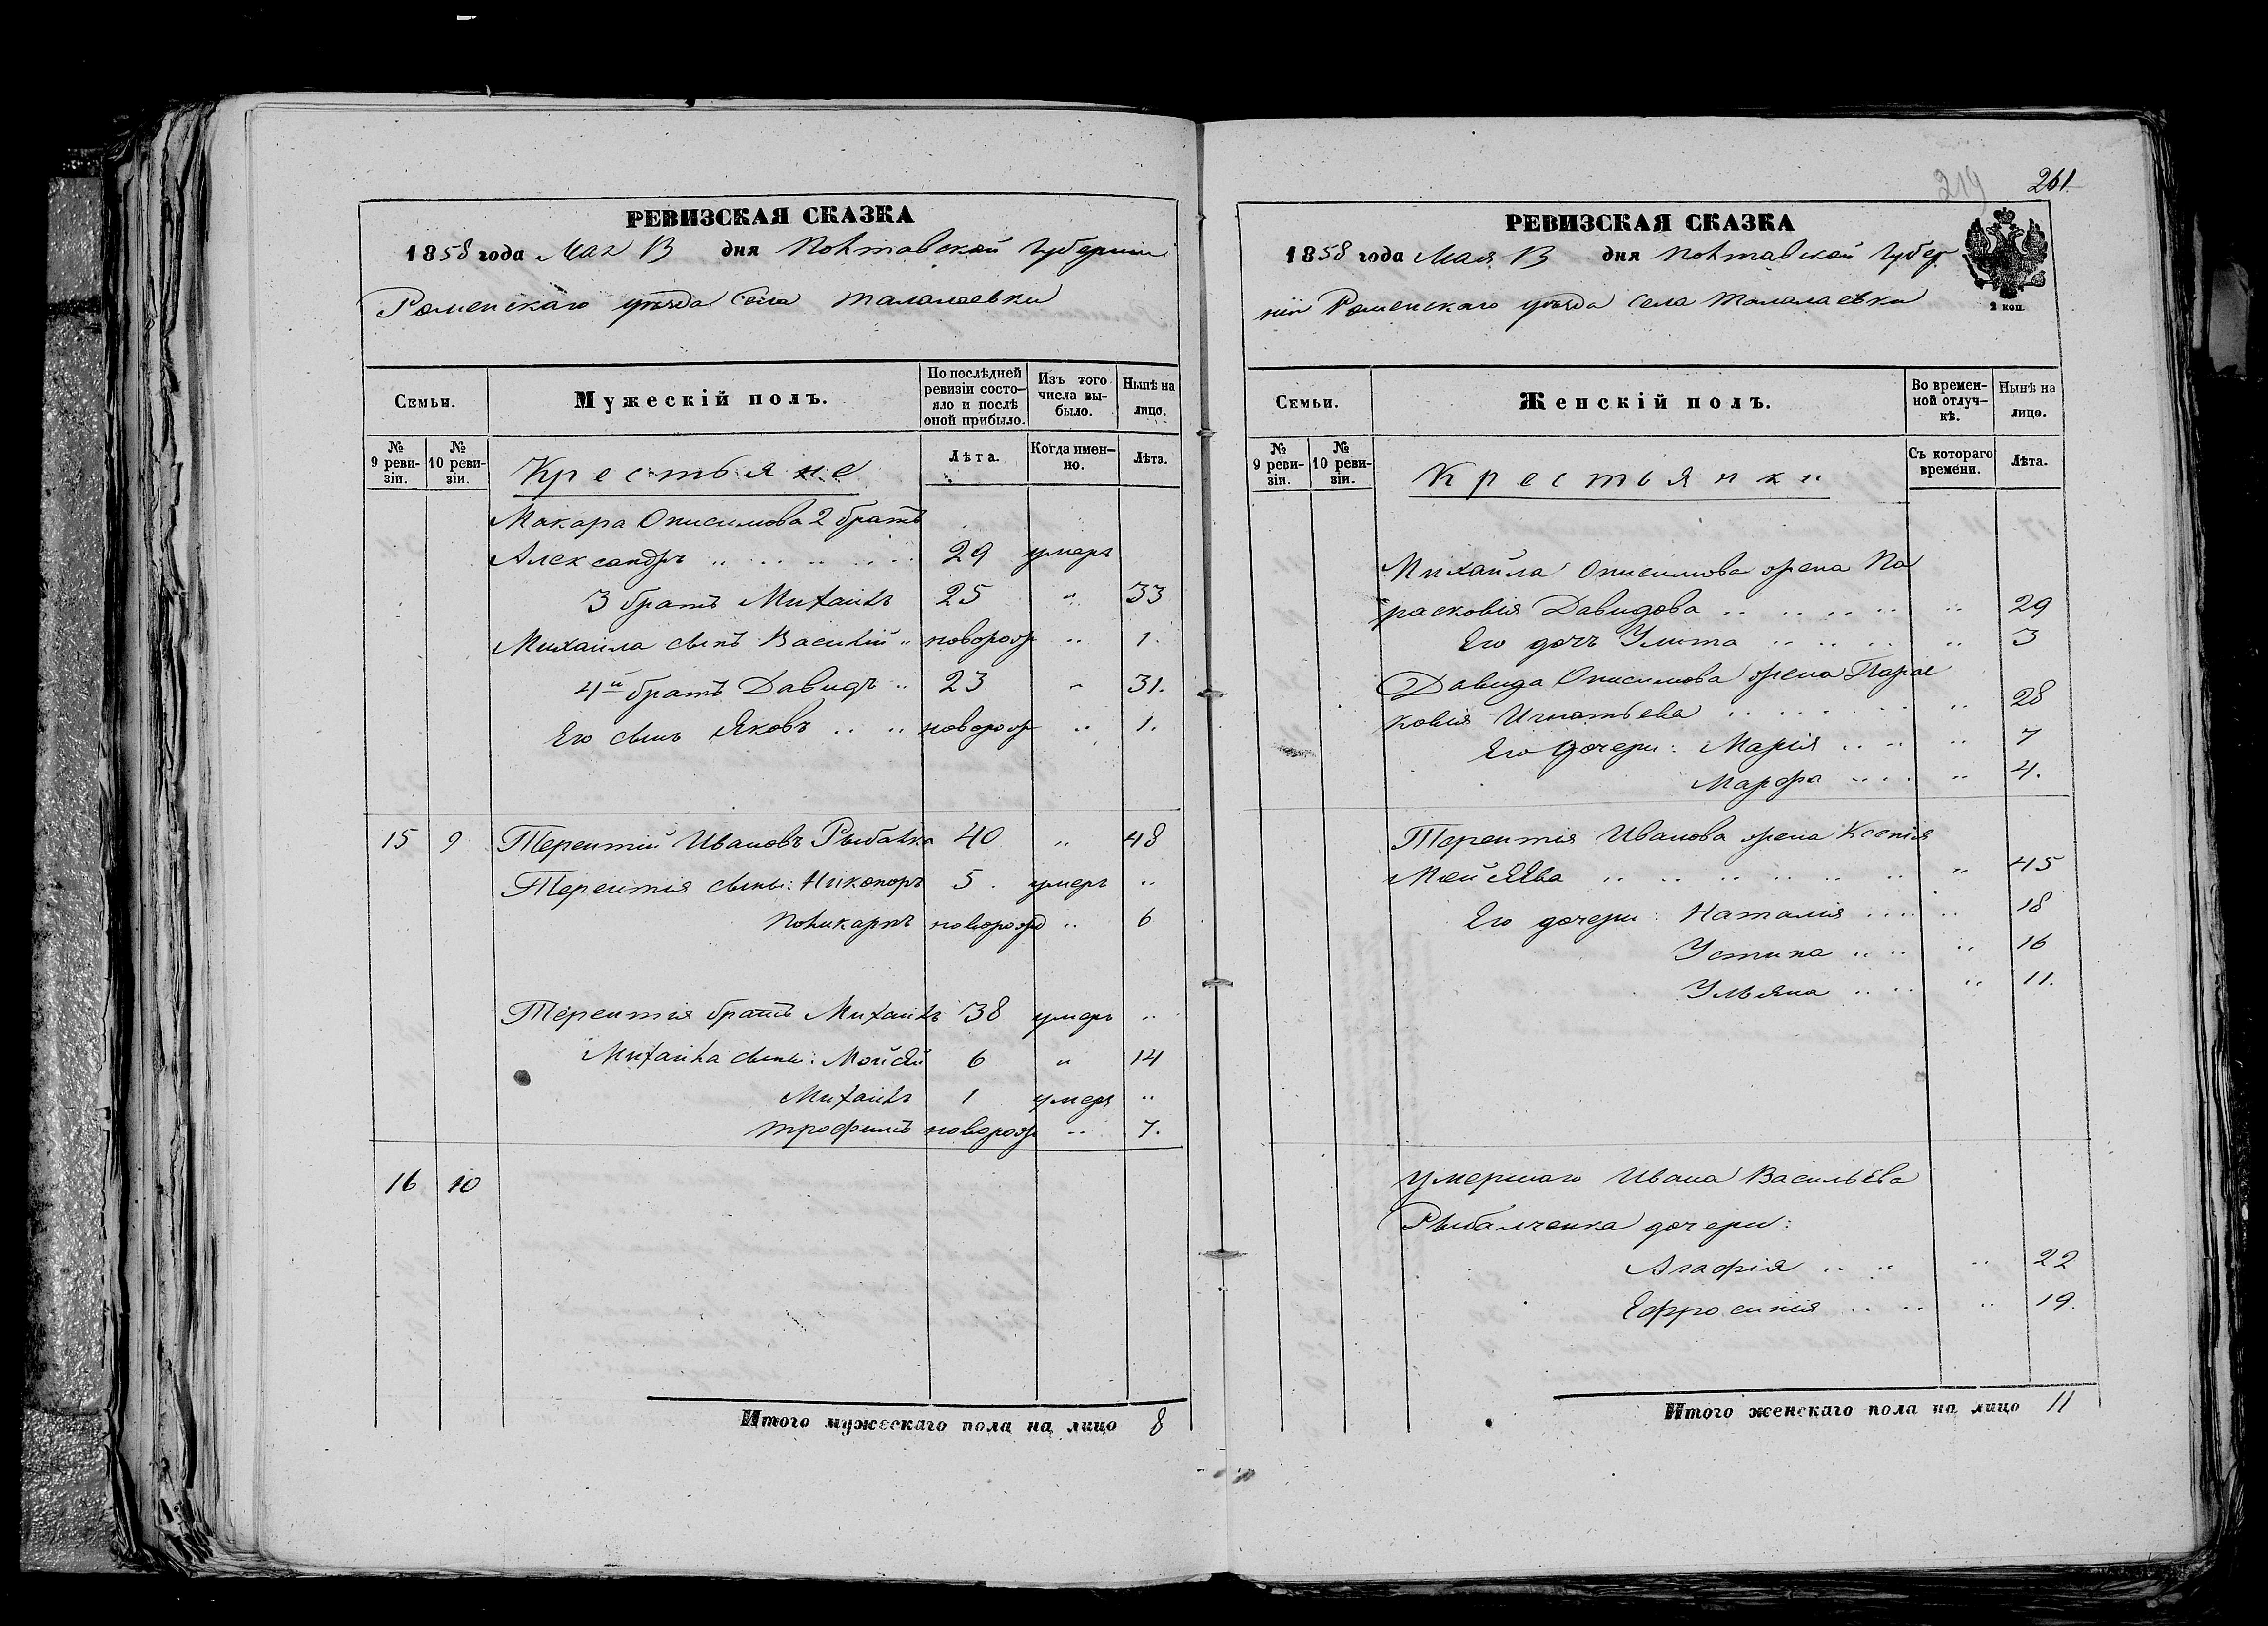 РЕВИЗСКАЯ СКАЗКА
1858 года Мая 13 дня Полтавской губернии
Роменскаго уѣзда Села Талалаевки
Семьи. Мужескій полъ. По послѣдней ревизіи состояло и послѣ оной прибыло. Изъ того числа выбыло. Нынѣ на лицо.
№ 9 ревизіи. № 10 ревизіи. Крестьяне Лѣта. Когда именно. Лѣта.
Макара Онисимова 2 братъ
Александръ 29 умеръ
3 братъ Михаилъ 25 " 33
Михаила сынъ Василій новорож " 1.
4й братъ Давидъ 23 " 31.
Его сынъ Яковъ новорож " 1.
15 9 Терентій Ивановъ Рыбалка 40 " 48
Терентія сыны: Никоноръ 5. умеръ "
Поликарпъ новорожд " 6
Терентія братъ Михаилъ 38 умеръ "
Михаила сыны: Мойсей 6 " 14
Михаилъ 1 умеръ "
Трофимъ новорож " 7.
16 10
Итого мужескаго пола на лицо 8
219 261
РЕВИЗСКАЯ СКАЗКА
1858 года Мая 13 дня Полтавской Губер
ніи Роменскаго уѣзда Села Талалаевки
2 коп.
Семьи. Женскій полъ. Во временной отлучкѣ. Нынѣ на лицо.
№ 9 ревизіи. № 10 ревизіи. Крестьянки Съ котораго времени. Лѣта.
Михайла Онисимова жена Па
расковія Давидова " 29
Его дочь Улита " 3
Давида Онисимова жена Парас
ковия Игнатьева " 28
Его дочери: Марія " 7
Марфа " 4.
Терентія Иванова жена Ксенія
Мойсеева " 45
Его дочери: Наталия " 18
Устина " 16
Ульяна " 11.
умершаго Ивана Васильева
Рыбалченка дочери:
Агафія " 22
Ефросинія " 19.
Итого женскаго пола на лицо 11